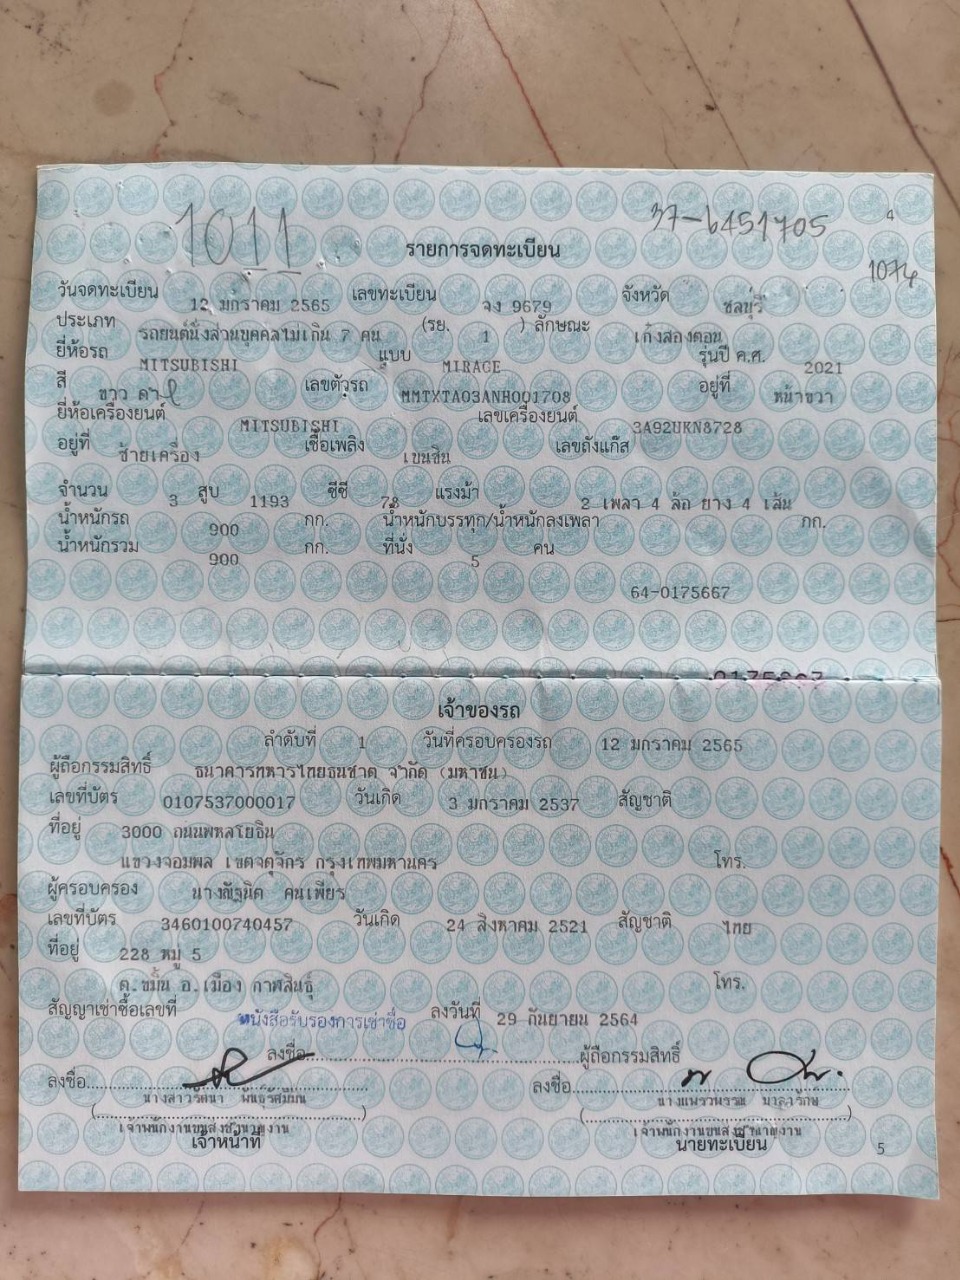 1011
37-6451705
4
รายการจดทะเบียน
1074
วันจดทะเบียน 12 มกราคม 2565 เลขทะเบียน จง 9679 จังหวัด ชลบุรี
ประเภท รถยนต์นั่งส่วนบุคคลไม่เกิน 7 คน (รย. 1 ) ลักษณะ เก๋งสองตอน
ยี่ห้อรถ MITSUBISHI แบบ MIRAGE รุ่นปี ค.ศ. 2021
สี ขาว ดำ เลขตัวรถ MMTXTA03ANH001708 อยู่ที่ หน้าขวา
ยี่ห้อเครื่องยนต์ MITSUBISHI เลขเครื่องยนต์ 3A92UKN8728
อยู่ที่ ซ้ายเครื่อง เชื้อเพลิง เบนซิน เลขถังแก๊ส
จำนวน 3 สูบ 1193 ซีซี 78 แรงม้า 2 เพลา 4 ล้อ ยาง 4 เส้น
น้ำหนักรถ 900 กก. น้ำหนักบรรทุก/น้ำหนักลงเพลา กก.
น้ำหนักรวม 900 กก. ที่นั่ง 5 คน
64-0175667
0175667
เจ้าของรถ
ลำดับที่ 1 วันที่ครอบครองรถ 12 มกราคม 2565
ผู้ถือกรรมสิทธิ์ ธนาคารทหารไทยธนชาต จำกัด (มหาชน)
เลขที่บัตร 0107537000017 วันเกิด 3 มกราคม 2537 สัญชาติ
ที่อยู่ 3000 ถนนพหลโยธิน
แขวงจอมพล เขตจตุจักร กรุงเทพมหานคร โทร.
ผู้ครอบครอง นางณัฐนิต คนเพียร
เลขที่บัตร 3460100740457 วันเกิด 24 สิงหาคม 2521 สัญชาติ ไทย
ที่อยู่ 228 หมู่ 5
ต.ขมิ้น อ.เมือง กาฬสินธุ์ โทร.
สัญญาเช่าซื้อเลขที่ หนังสือรับรองการเช่าซื้อ ลงวันที่ 29 กันยายน 2564
ลงชื่อ ผู้ถือกรรมสิทธิ์
ลงชื่อ ลงชื่อ
นางสาวรัตนา พันธุ์รัศมิมน นางแพรวพรรณ มาลารักษ์
เจ้าพนักงานขนส่งชำนาญงาน เจ้าพนักงานขนส่งชำนาญงาน
เจ้าหน้าที่ นายทะเบียน
5